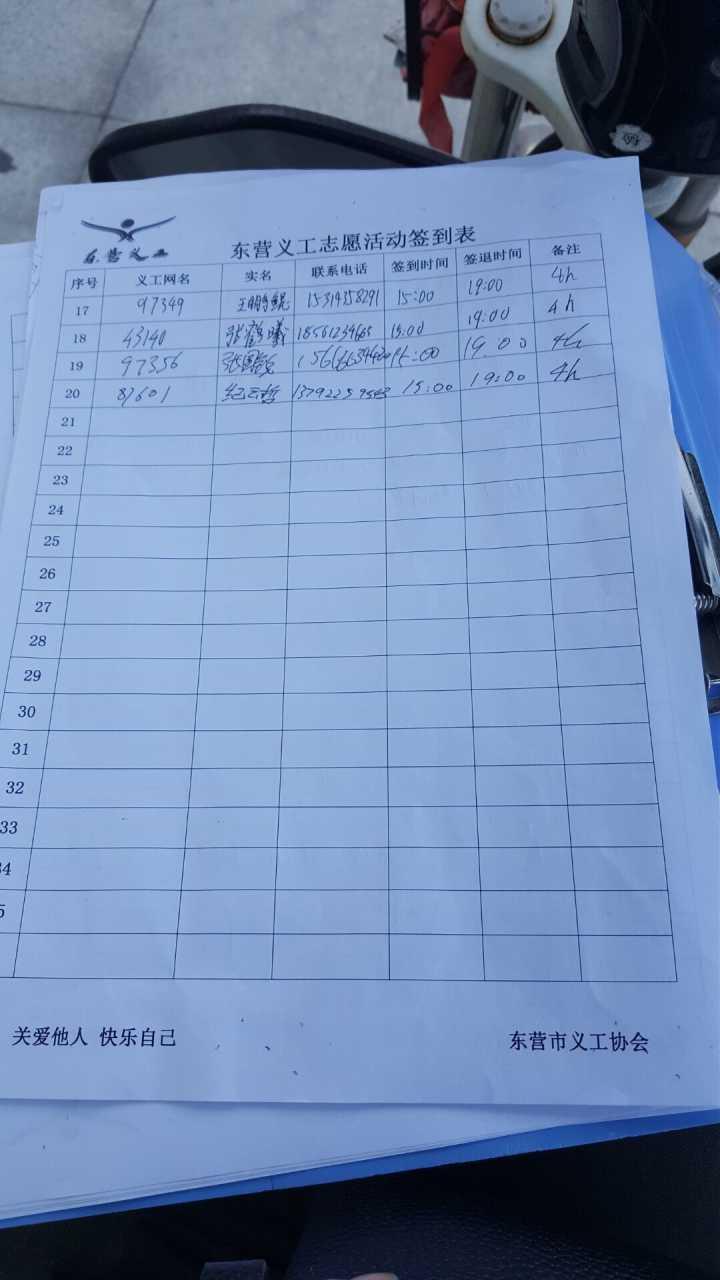 东营义工
东营义工志愿活动签到表
序号 义工网名 实名 联系电话 签到时间 签退时间 备注
17 97349 15319258291 15:00 19:00 4h
18 43140 15:00 19:00 4h
19 97356 19:00 4h
20 87601 15:00 19:00 4h
21
22
23
24
25
26
27
28
29
30
31
32
33
34
5
关爱他人 快乐自己 东营市义工协会